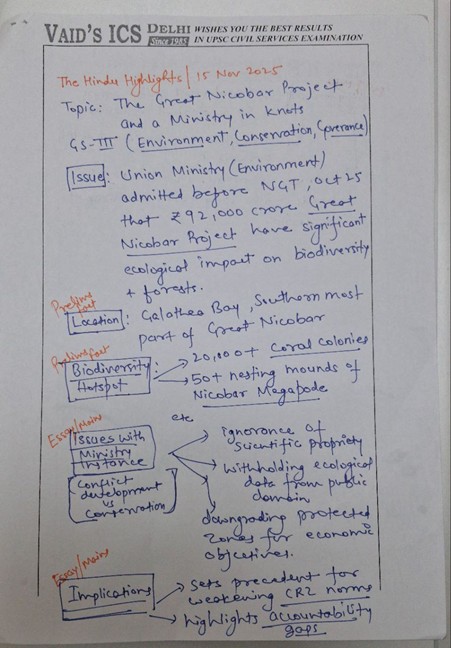 VAID'S ICS DELHI Since 1985 WISHES YOU THE BEST RESULTS
IN UPSC CIVIL SERVICES EXAMINATION
The Hindu Highlights / 15 Nov 2025
Topic: The Great Nicobar Project
and a Ministry in knots
GS-III (Environment, Conservation, Governance)
Issue: Union Ministry (Environment)
admitted before NGT, Oct 25
that ₹92,000 crore Great
Nicobar Project have significant
ecological impact on biodiversity
+ forests.
Prelims fact
Location: Galathea Bay, Southern most
part of Great Nicobar
Prelims fact
Biodiversity Hotspot: → 20,000+ Coral colonies
→ 50+ nesting mounds of
Nicobar Megapode
etc
Essay/Mains
Issues with
Ministry
Instance
Conflict
development
vs
Conservation
→ ignorance of
scientific propriety
→ withholding ecological
data from public
domain
→ downgrading protected
zones for economic
objectives.
Essay/Mains
Implications → Sets precedent for
weakening CRZ norms
→ highlights accountability
gaps